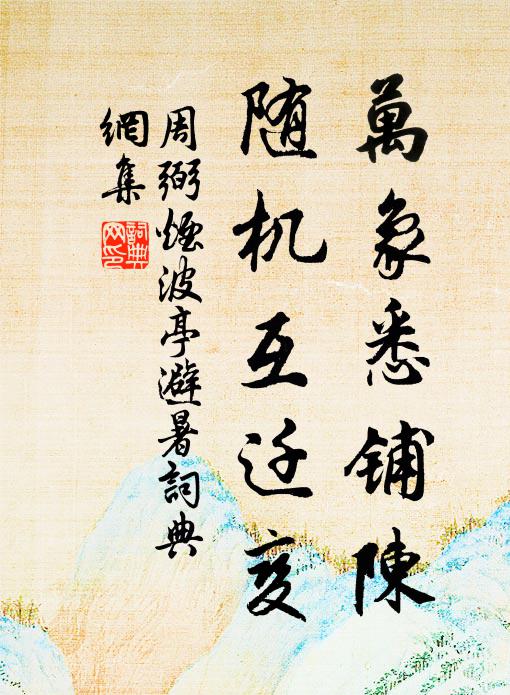 萬象悉鋪陳
随机互迁变
周弼煙波亭避暑詞典
網集
詞典
网印